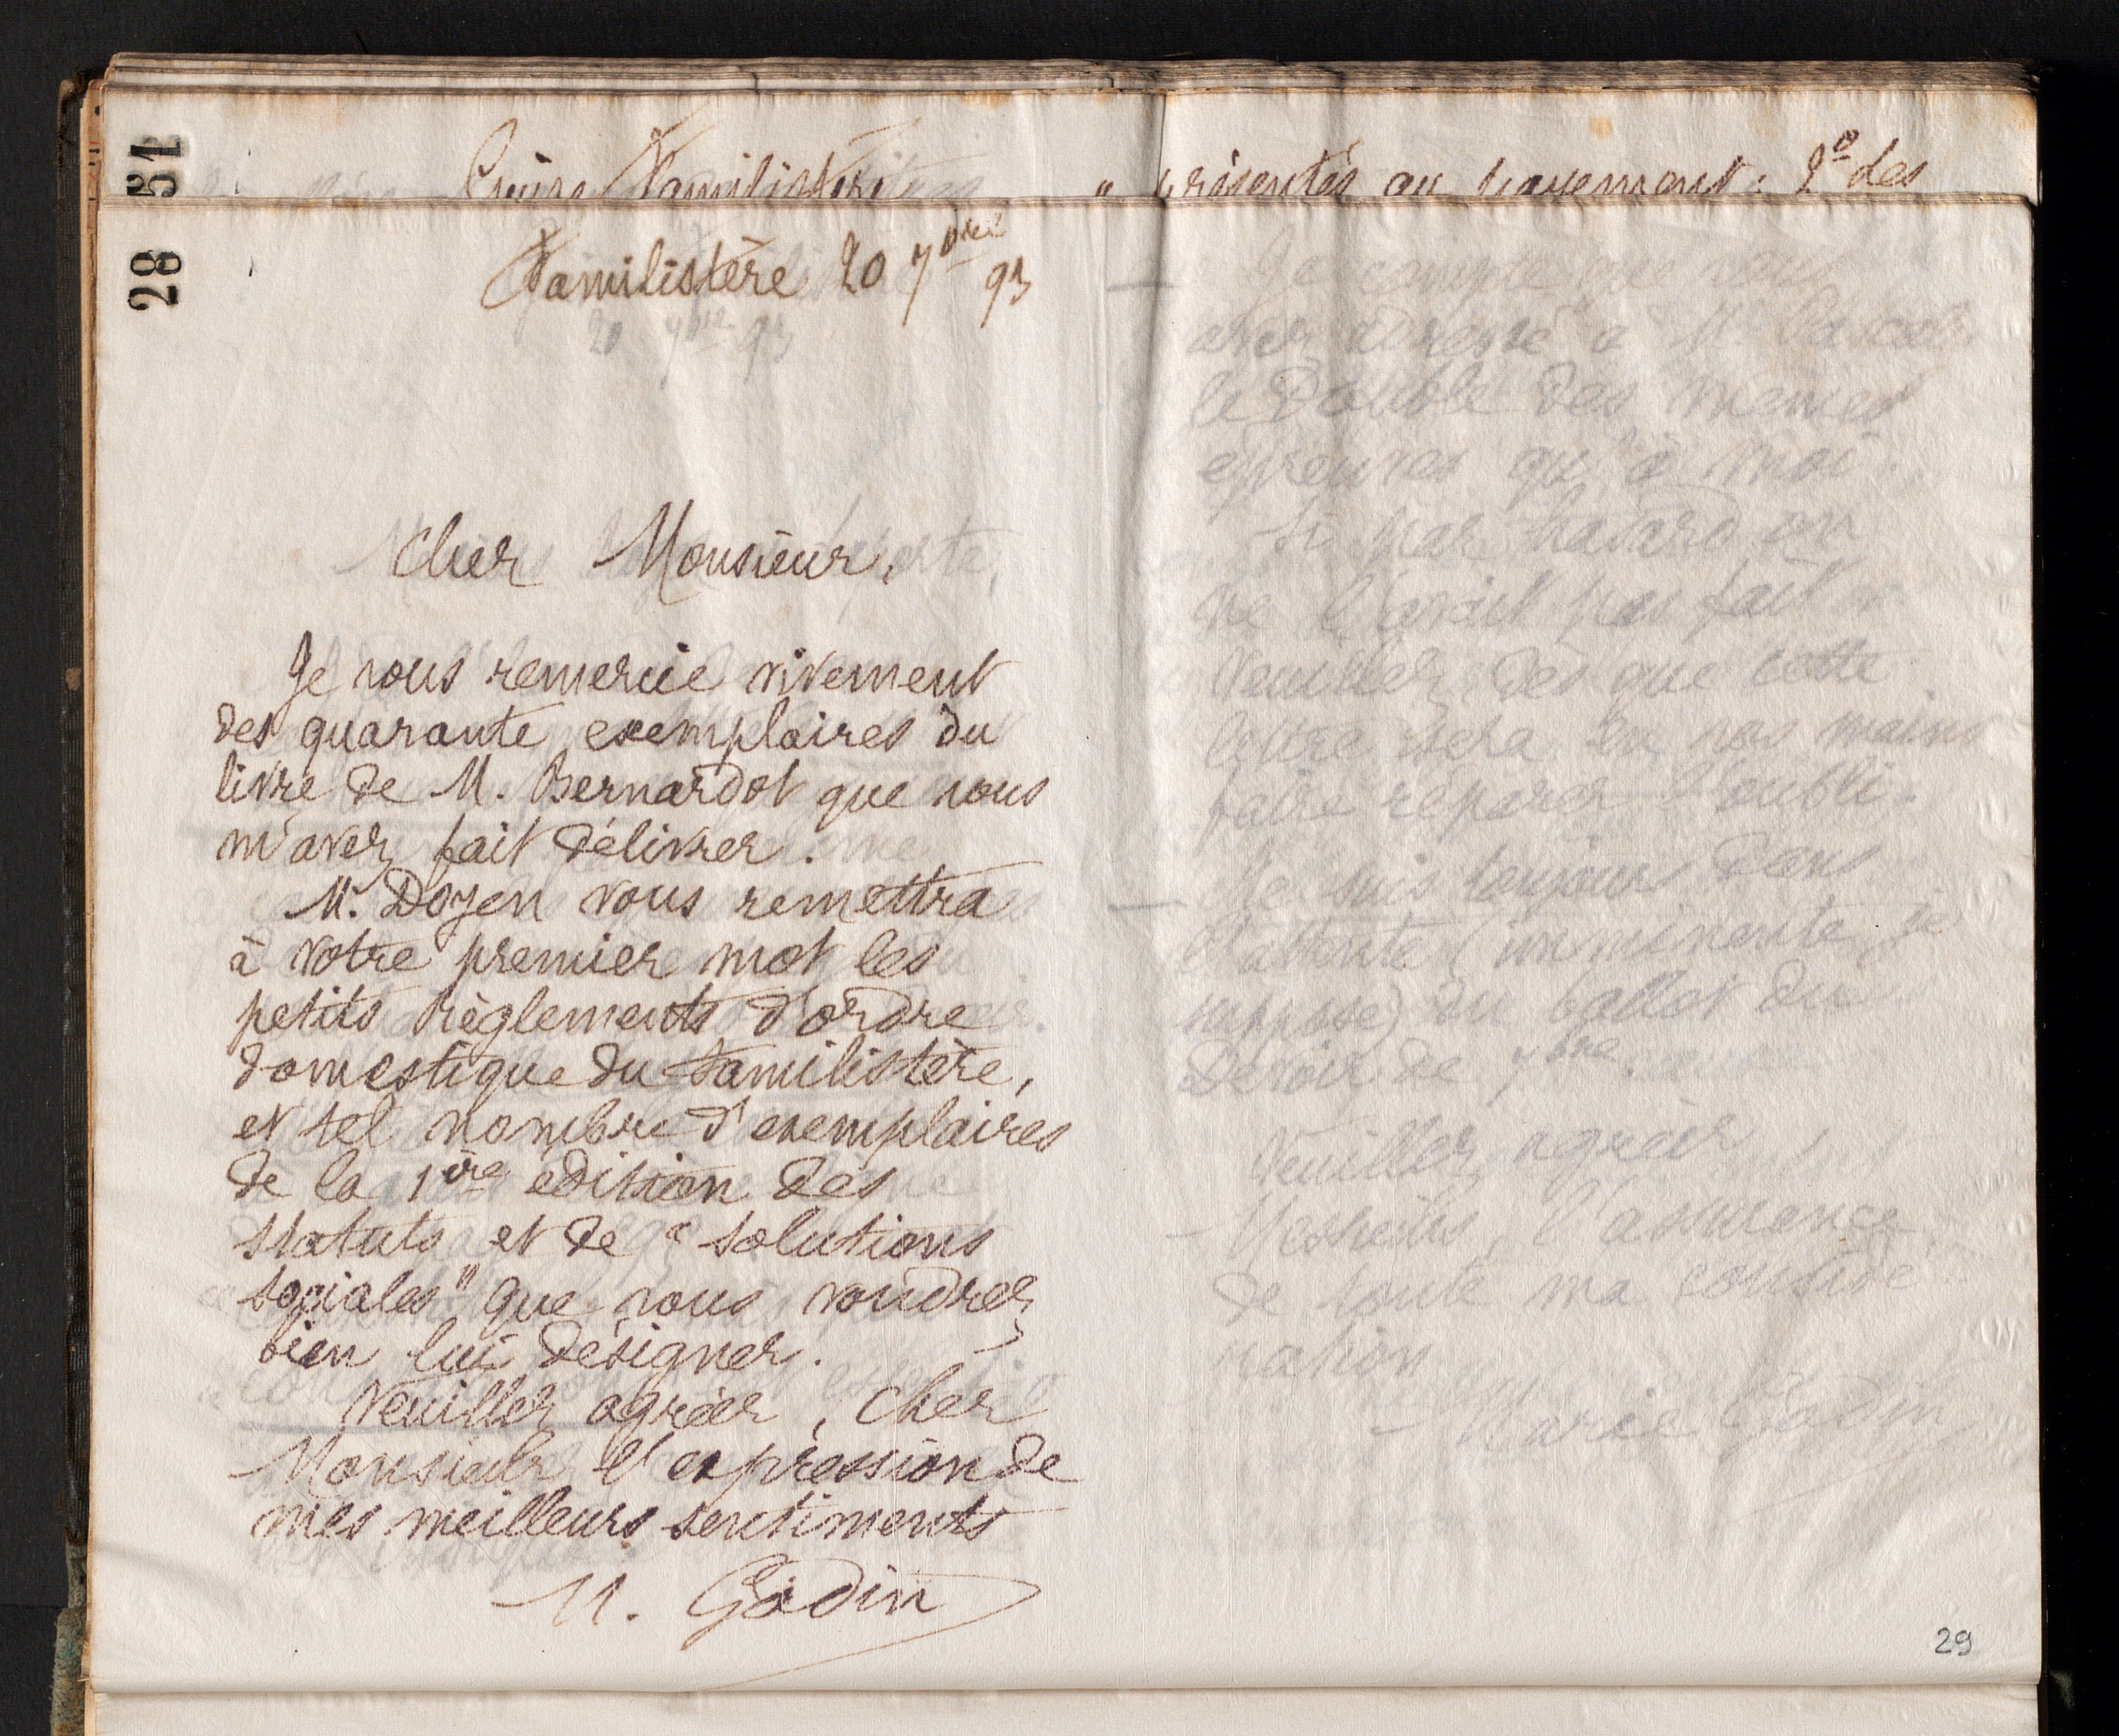 31
Guise Familistère
" présentés au payement : 2º Les
28
Familistère 20 7bre 93
Cher Monsieur,
Je vous remercie vivement
des quarante exemplaires du
livre de M. Bernardot que vous
m'avez fait délivrer.
M. Doyen vous remettra
à votre premier mot les
petits règlements d'ordre
domestique du Familistère,
et tel nombre d'exemplaires
de la 1ère édition des
statuts et de "solutions
sociales" que vous voudrez
bien lui désigner.
Veuillez agréer, Cher
Monsieur l'expression de
mes meilleurs sentiments
M. Godin
Je compte que vous
avez adressé à M. Pascaly
le double des mêmes
épreuves qu'à moi.
Si par hasard on
ne l'avait pas fait
veuillez, dès que cette
lettre sera en vos mains
faire réparer l'oubli.
Je suis toujours dans
l'attente (imminente je
suppose) du ballot du
Devoir de 7bre.
Veuillez agréer,
Messieurs, l'assurance
de toute ma considé
ration
Marie Godin
29